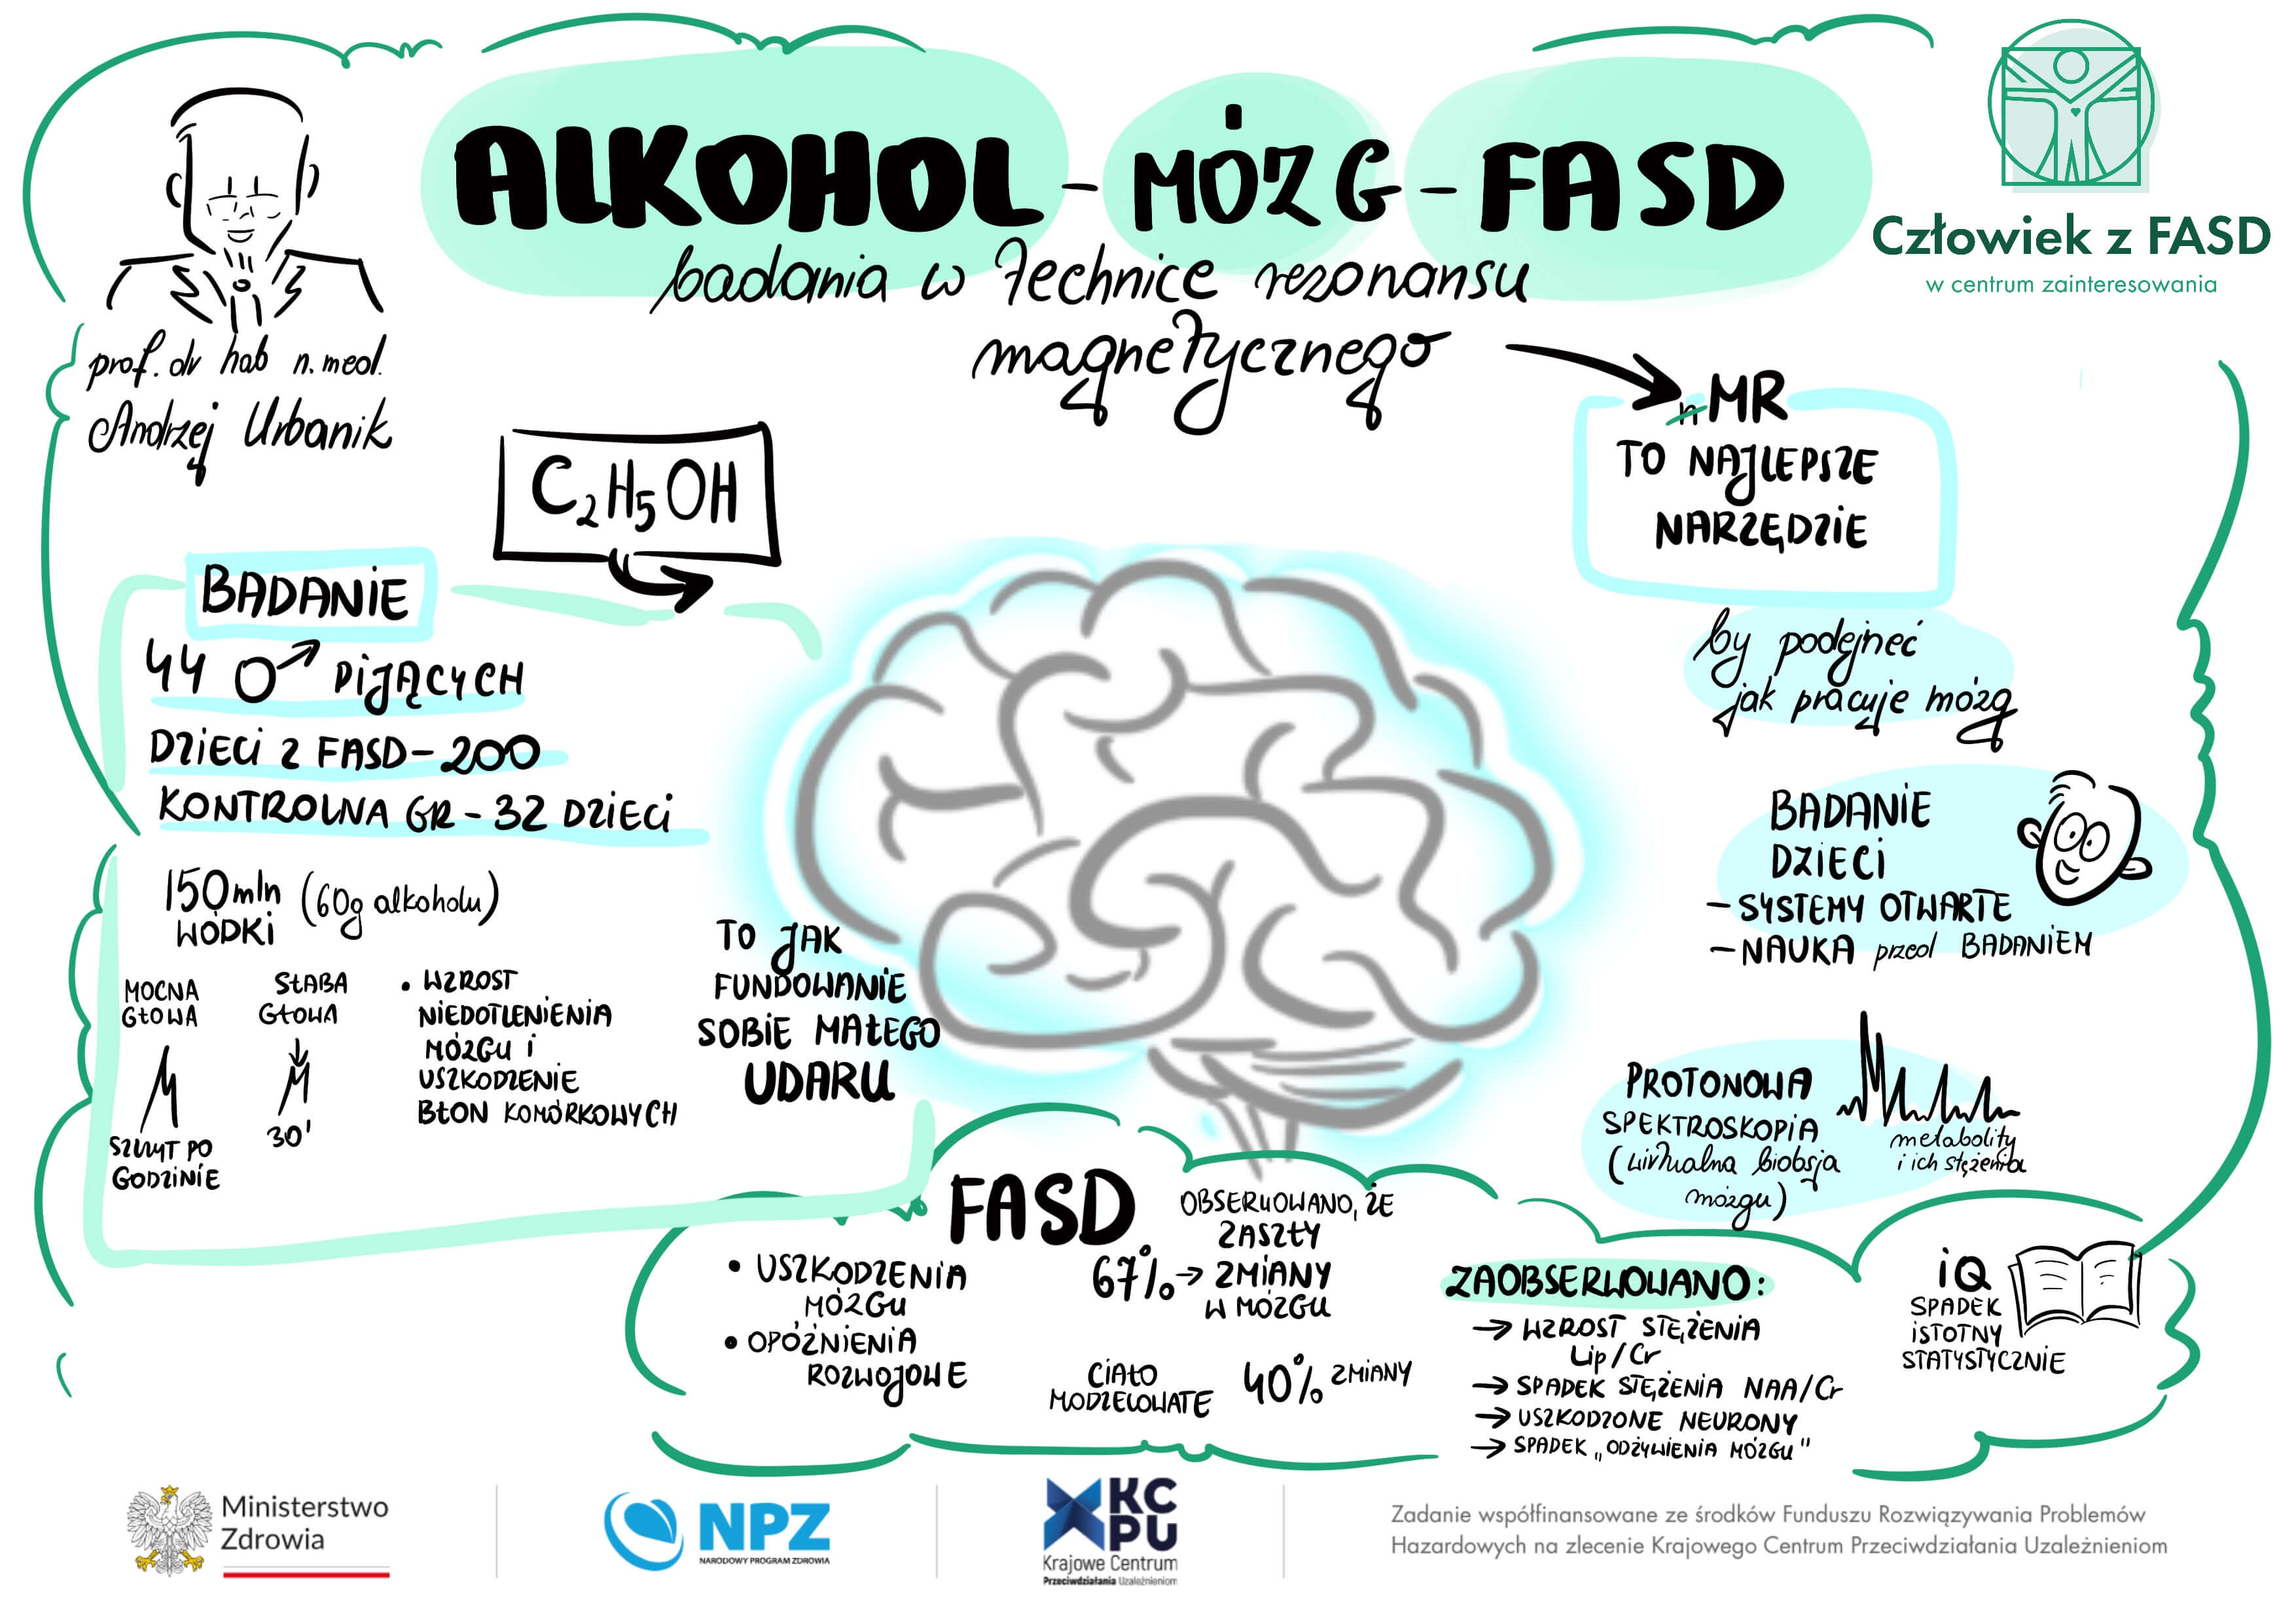 ALKOHOL - MÓZG - FASD
badania w technice rezonansu
magnetycznego
Człowiek z FASD
w centrum zainteresowania
prof. dr hab n. med.
Andrzej Urbanik
C₂H₅OH
nMR
TO NAJLEPSZE
NARZĘDZIE
by podejrzeć
jak pracuje mózg
BADANIE
44 ♂ PIJĄCYCH
DZIECI Z FASD - 200
KONTROLNA GR - 32 DZIECI
150mln (60g alkoholu)
WÓDKI
MOCNA
GŁOWA
SZCZYT PO
GODZINIE
SŁABA
GŁOWA
30'
• WZROST
NIEDOTLENIENIA
MÓZGU i
USZKODZENIE
BŁON KOMÓRKOWYCH
TO JAK
FUNDOWANIE
SOBIE MAŁEGO
UDARU
BADANIE
DZIECI
- SYSTEMY OTWARTE
- NAUKA przed BADANIEM
PROTONOWA
SPEKTROSKOPIA
(wirtualna biobsja
mózgu)
metabolity
i ich stężenia
FASD
• USZKODZENIA
MÓZGU
• OPÓŹNIENIA
ROZWOJOWE
OBSERWOWANO, ŻE
ZASZŁY
67% → ZMIANY
W MÓZGU
CIAŁO
MODZELOWATE
40% ZMIANY
ZAOBSERWOWANO:
→ WZROST STĘŻENIA
Lip/Cr
→ SPADEK STĘŻENIA NAA/Cr
→ USZKODZONE NEURONY
→ SPADEK „ODŻYWIENIA MÓZGU"
iQ
SPADEK
ISTOTNY
STATYSTYCZNIE
Ministerstwo
Zdrowia
NPZ
NARODOWY PROGRAM ZDROWIA
KC
PU
Krajowe Centrum
Przeciwdziałania Uzależnieniom
Zadanie współfinansowane ze środków Funduszu Rozwiązywania Problemów
Hazardowych na zlecenie Krajowego Centrum Przeciwdziałania Uzależnieniom